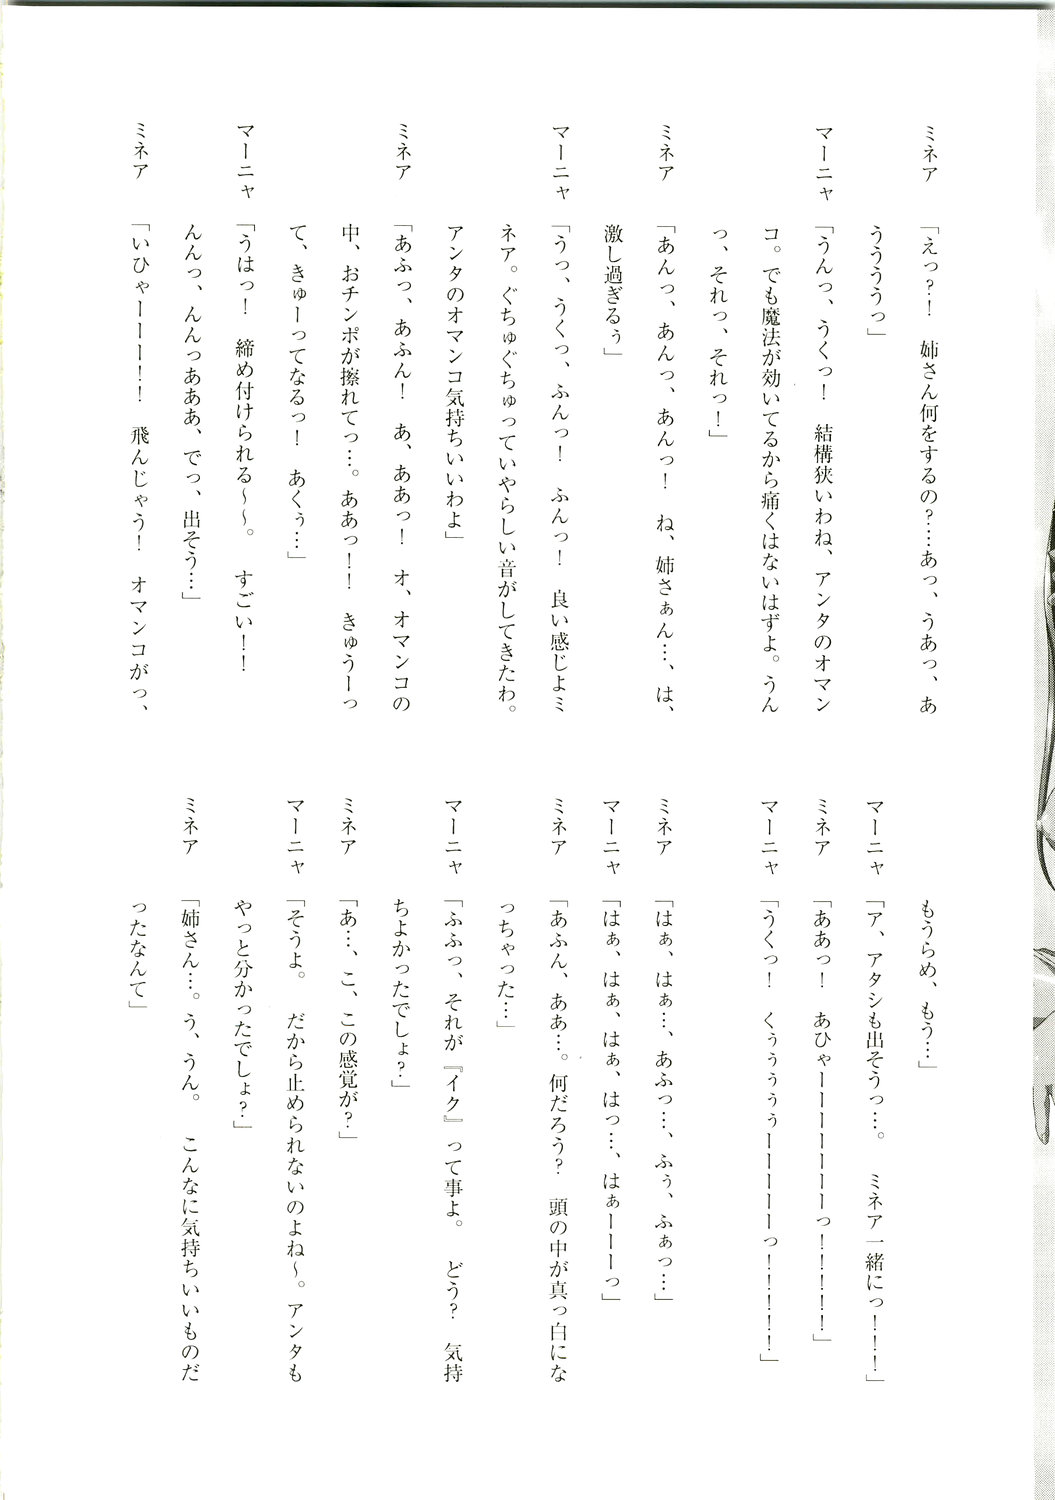 ミネア 「えっ?! 姉さん何をするの?…あっ、うあっ、あ
うううっ」
マーニャ 「うんっ、うくっ! 結構狭いわね、アンタのオマン
コ。でも魔法が効いてるから痛くはないはずよ。うん
っ、それっ、それっ!」
ミネア 「あんっ、あんっ、あんっ! ね、姉さぁん…、は、
激し過ぎるぅ」
マーニャ 「うっ、うくっ、ふんっ! ふんっ! 良い感じよミ
ネア。ぐちゅぐちゅっていやらしい音がしてきたわ。
アンタのオマンコ気持ちいいわよ」
ミネア 「あふっ、あふん! あ、ああっ! オ、オマンコの
中、おチンポが擦れてっ…。ああっ!! きゅうーっ
て、きゅーってなるっ! あくぅ…」
マーニャ 「うはっ! 締め付けられる～～。 すごい!!
んんっ、んんっあああ、でっ、出そう…」
ミネア 「いひゃーーー!! 飛んじゃう! オマンコがっ、
もうらめ、もう…」
マーニャ 「ア、アタシも出そうっ…。 ミネア一緒にっ!!!」
ミネア 「ああっ! あひゃーーーーーーっ!!!!」
マーニャ 「うくっ! くぅぅぅぅーーーーっ!!!!!」
ミネア 「はぁ、はぁ…、あふっ…、ふぅ、ふぁっ…」
マーニャ 「はぁ、はぁ、はぁ、はっ…、はぁーーーっ」
ミネア 「あふん、ああ…。何だろう? 頭の中が真っ白にな
っちゃった…」
マーニャ 「ふふっ、それが『イク』って事よ。 どう? 気持
ちよかったでしょ?」
ミネア 「あ…、こ、この感覚が?」
マーニャ 「そうよ。 だから止められないのよね～。アンタも
やっと分かったでしょ?」
ミネア 「姉さん…。う、うん。 こんなに気持ちいいものだ
ったなんて」